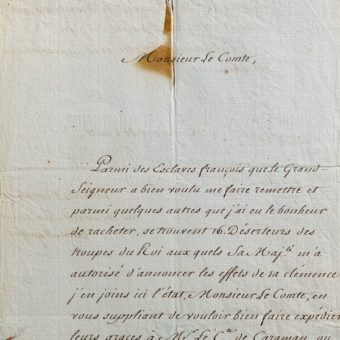 Monsieur Le Comte,
Parmi des Esclaves françois que le Grand-
Seigneur a bien voulu me faire remettre et
parmi quelques autres que j'ai eu le bonheur
de racheter, se trouvent 16. Déserteurs des
troupes du Roi aux quels Sa Maj.té m'a
autorisé d'annoncer les effets de sa clémence
j'en joins ici l'état, Monsieur Le Comte, en
vous suppliant de vouloir bien faire expédier
leurs graces à M. Le C.te de Caraman ou